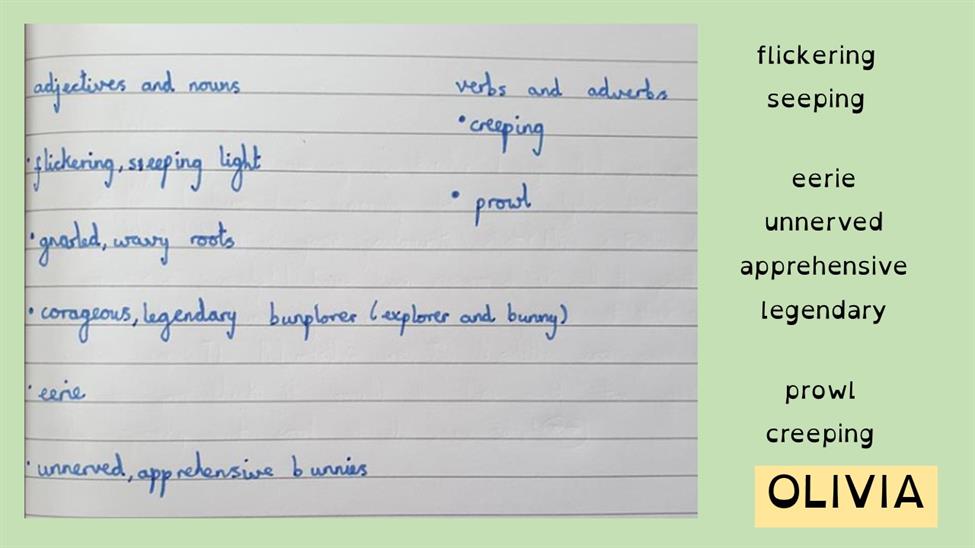 adjectives and nouns
verbs and adverbs
• creeping
• flickering, seeping light
• prowl
• gnarled, wavy roots
• corageous, legendary bunplorer (explorer and bunny)
• eerie
• unnerved, apprehensive bunnies
flickering
seeping
eerie
unnerved
apprehensive
legendary
prowl
creeping
OLIVIA